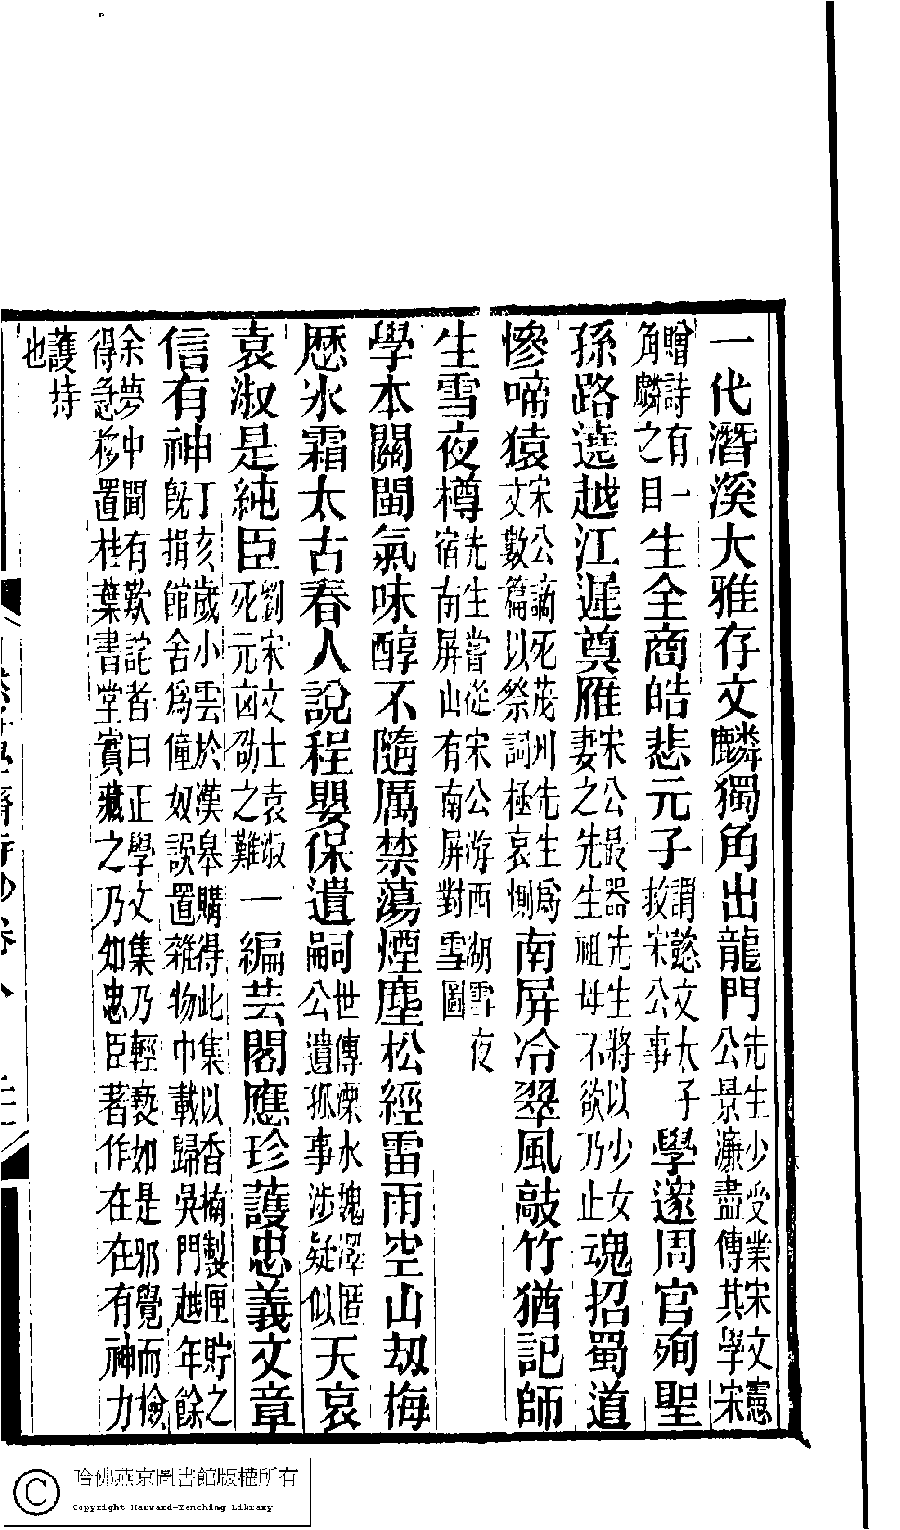 一代潛溪大雅存文麟獨角出龍門先生少受業宋文憲公景濂盡傳其學宋
贈詩有一角麟之目生全商皓悲元子謂懿文太子救宋公事學邃周官殉聖
孫路遶越江遲奠雁宋公最器先生將以少女妻之先生祖母不欲乃止魂招蜀道
慘啼猿宋公謫死茂州先生爲文數篇以祭詞極哀惻南屏冷翠風敲竹猶記師
生雪夜樽先生嘗從宋公游西湖雪夜宿南屏山有南屏對雪圖
學本關閩氣味醇不隨厲禁蕩煙塵松經雷雨空山刼梅
歷氷霜太古春人說程嬰保遺嗣世傳溧水魏澤匿公遺孤事涉疑似天哀
袁淑是純臣劉宋文士袁淑死元凶劭之難一編芸閣應珍護忠義文章
信有神丁亥歲小雲於漢皋購得此集以香楠製匣貯之旣捐館舍爲僮奴誤置雜物中載歸吳門越年餘
余夢中聞有歎詫者曰正學文集乃輕褻如是邪覺而檢得急移置桂葉書堂寶藏之乃知忠臣著作在在有神力
護持也
哈佛燕京圖書館版權所有
Copyright Harvard-Yenching Library